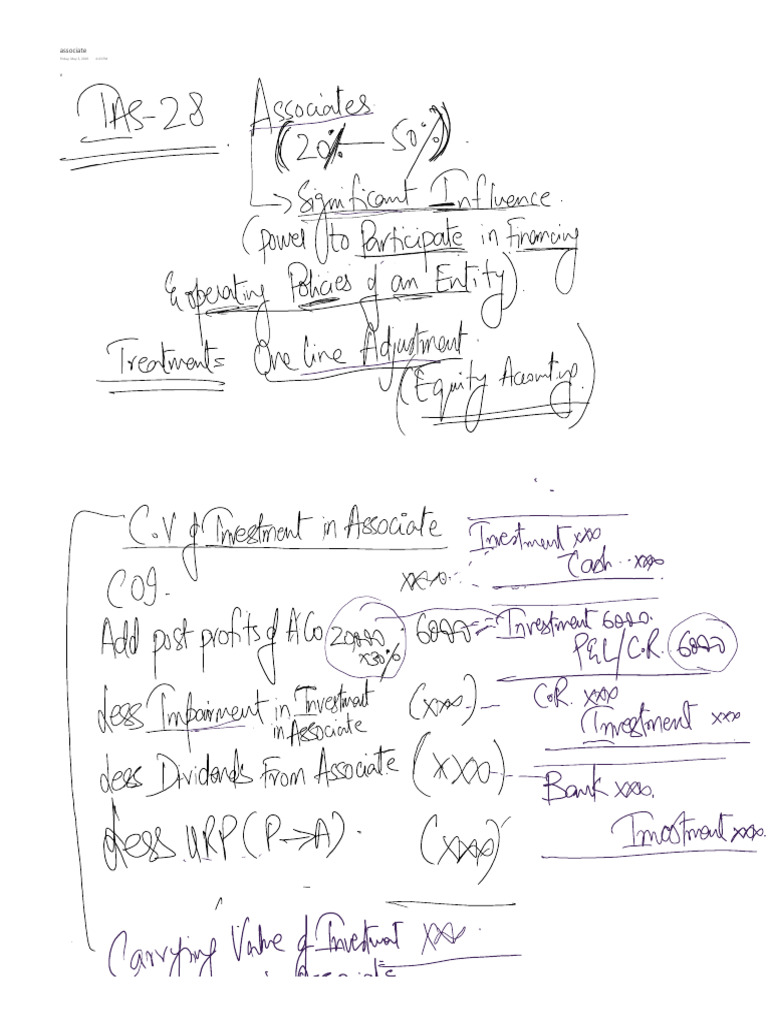 associate
IAS-28
Associates
(20% — 50%)
Significant Influence.
(power to Participate in Financing
& operating Policies of an Entity).
Treatments One line Adjustment.
(Equity Accounting)
C.V of Investment in Associate
Investment xxx
Cash xxx
COI. xxx
Add post profits of A Co 20,000 x30% 6000 = Investment 6000.
P&L/C.R. 6000
Less Impairment in Investment in Associate (xxx)
C.R. xxx
Investment xxx
Less Dividends From Associate (xxx)
Bank xxx.
Investment xxx.
Less URP (P→A). (xxx)
Carrying Value of Investment xxx.
Associate